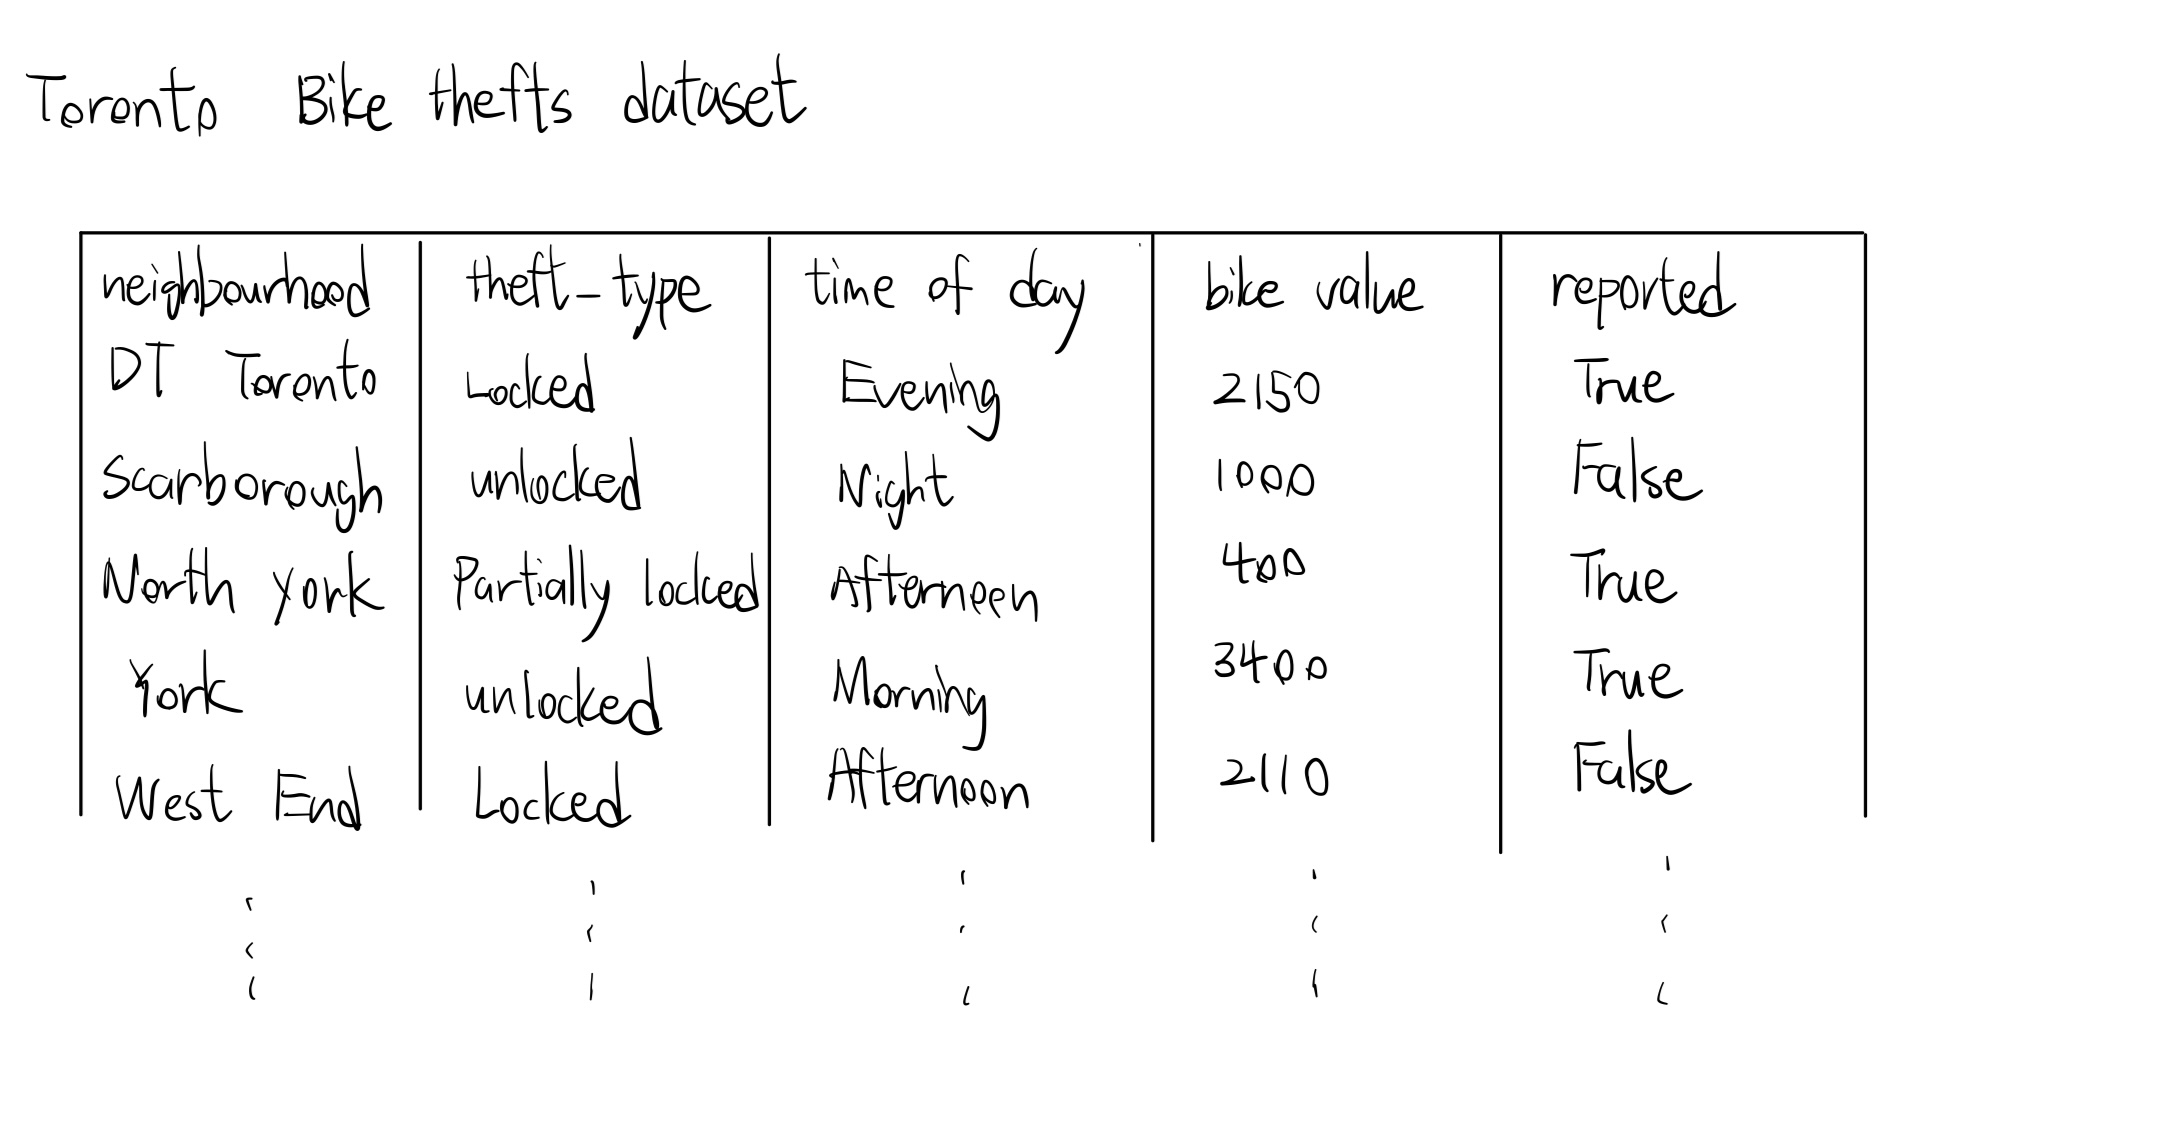 Toronto Bike thefts dataset
neighbourhood theft_type time of day bike value reported
DT Toronto Locked Evening 2150 True
Scarborough unlocked Night 1000 False
North York Partially locked Afternoon 400 True
York unlocked Morning 3400 True
West End Locked Afternoon 2110 False